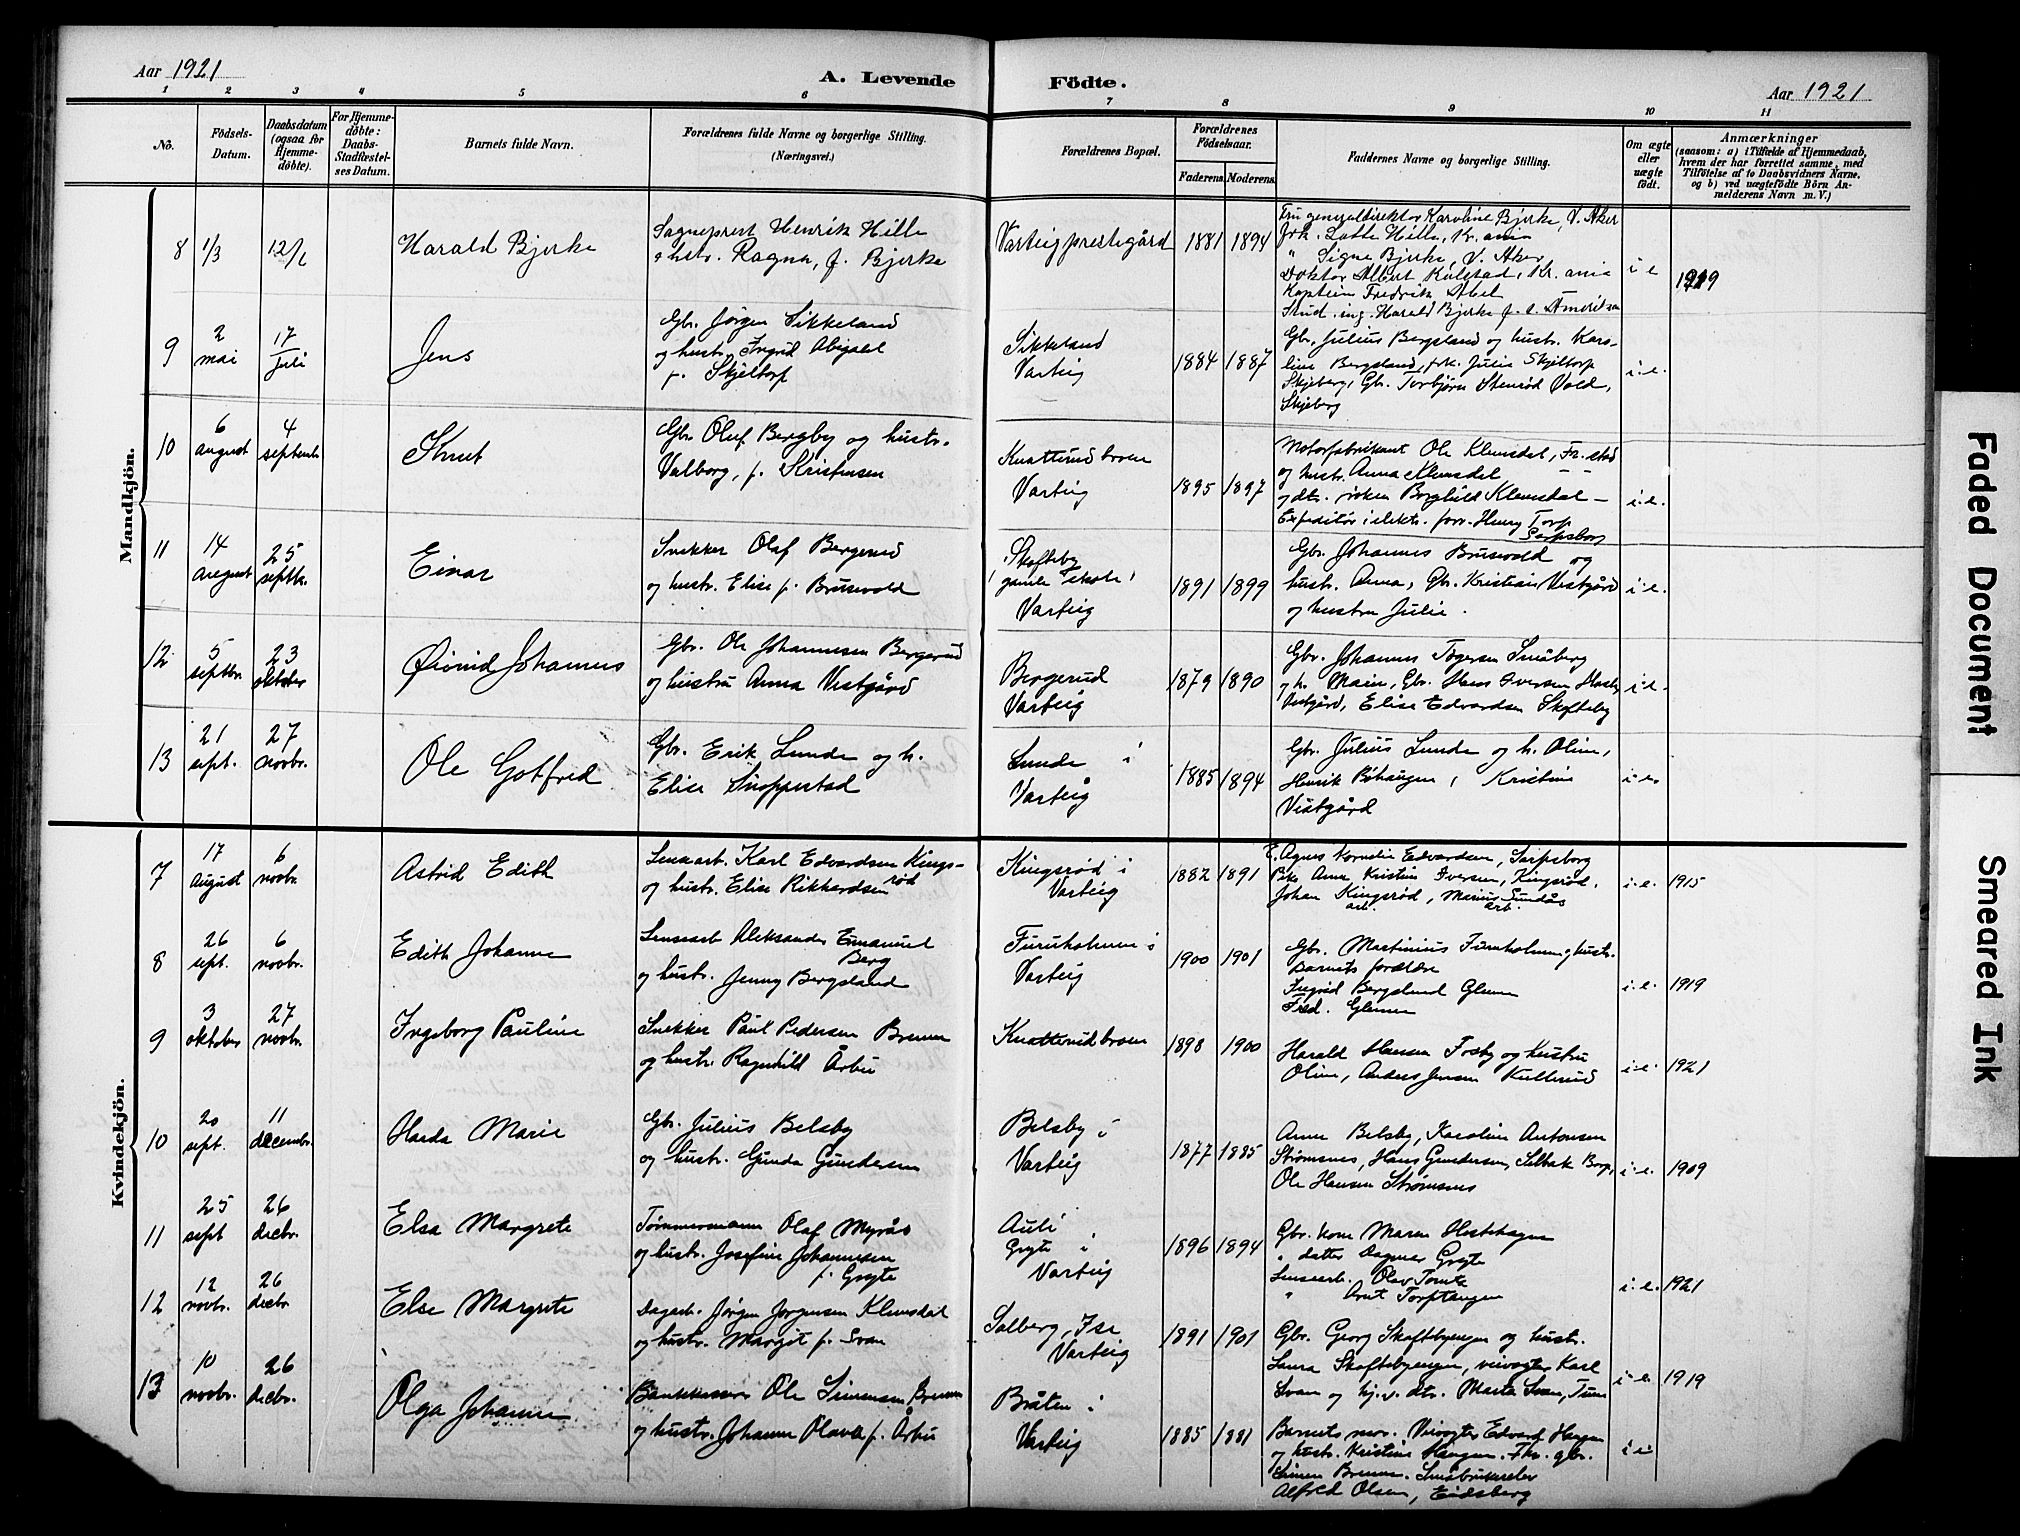 Aar 1921
A. Levende
Födte.
Aar 1921
1 2 3 4 5 6 7 8 9 10 11
Nô.
Födsels-
Datum.
Daabsdatum
(ogsaa for
Hjemme-
döbte).
For Hjemme-
döbte:
Daabs-
Stadfæstel-
ses Datum.
Barnets fulde Navn.
Forældrenes fulde Navne og borgerlige Stilling.
(Næringsvei.)
Forældrenes Bopæl.
Forældrenes
Födselsaar.
Faderens. Moderens.
Faddernes Navne og borgerlige Stilling.
Om ægte
eller
uægte
født.
Anmærkninger
(saasom: a) i Tilfælde af Hjemmedaab,
hvem der har forrettet samme, med
Tilföielse af to Daabsvidners Navne.
og b) ved uægtefödte Börn An-
melderens Navn m. V.)
Mandkjön.
8 1/3
Harald Bjerke
Sogneprest Henrik Hille
Ragna, f. Bjerke
Varteig prestegård
1881 1894
Fru generaldirektør Karoline Bjerke, V. Aker
frk. Lotte Hille, Kr.ania
" Signe Bjerke, V. Aker
Doktor Albert Kulstad, Kr.ania
Kaptein Fredrik Abel
Stud. ing. Harald Bjerke
i e
9 2 mai 17 juli
Jens
Gbr. Jörgen Sikkeland
og hustr. Ingrid Abigael
f. Skjeltorp
Sikkeland
Varteig
1884 1887
Gbr. Julius Bergsland og hustr. Karo-
line Bergsland, frk. Julie Skjeltorp
Skjeberg, Gbr. Torbjörn Stenröd Vold,
Skjeberg
i.e.
10 6 august 4 septemb.
Knut
Gbr. Oluf Bergby og hustr.
Valborg, f. Kristensen
Knatterudbroen
Varteig
1895 1897
Motorfabrikant Ole Klemsdal, Fr.stad
og hustr. Anna Klemsdal
og dtr. Borghild Klemsdal
Expeditör i elektr. forr. Henry Torp
Sarpsborg
i.e.
11 14 august 25 septbr.
Einar
Snekker Olaf Bergerud
og hustr. Elise f. Brusevold
Skofteby
gamle skole
Varteig
1891 1899
Gbr. Johannes Brusevold og
hustr. Anna, Gbr. Kristian Vestgård
og hustru Julie.
i.e.
12 5 septbr. 23 oktober
Øivind Johannes
Gbr. Ole Johannesen Bergerud
og hustru Anna Vestgård
Bergerud
Varteig
1879 1890
Gbr. Johannes Togersen Småberg
og h. Maren, Gbr. Hans Iversen
Vestgård, Elise Edvardsen Skofteby
i.e.
13 21 sept. 27 novbr.
Ole Gotfred
Gbr. Erik Lunde og h.
Elise Snoppestad
Lunde i
Varteig
1885 1894
Gbr. Julius Lunde og h. Oline,
Henrik Böhaugen, Kristine
Vestgård
i.e.
Kvindekjön.
7 17 August 6 novbr.
Astrid Edith
Lensearb. Karl Edvardsen Kings-
röd
og hustr. Elise Rikkardsen
Kingsröd i
Varteig
1882 1891
E. Agnes Kornelie Edvardsen, Sarpsborg
Pike Anna Kristine Iversen, Kingsröd,
Johan Kingsröd, Marius Sundås
arb. arb.
i.e. 1915
8 26 sept. 6 novbr.
Edith Johanne
Lensearb Aleksander Emanuel
Berg
og hustr. Jenny Bergsland
Furuholmen i
Varteig
1900 1901
Gbr. Martinius Furuholmen og hustr.
Barnets forældre
Ingrid Bergslund Glemm
Fred. Glemm
i.e. 1919
9 3 oktober 27 novbr.
Ingeborg Pauline
Snekker Paul Pedersen Bremm
og hustr. Ragnhild Årbu
Knatterudbroen
1898 1900
Harald Hansen Fosby og hustru
Oline, Anders Jensen Kullerud
i.e. 1921
10 20 sept. 11 decembr.
Harda Marie
Gbr. Julius Belsby
og hustr. Gunda Gundersen
Belsby i
Varteig
1877 1885
Anna Belsby, Karoline Antonsen
Strömsnes, Hans Gundersen, Selbak Borge,
Ole Hansen Strömsnes
i.e. 1909
11 25 sept 26 decbr.
Elsa Margrete
Tömmermann Olaf Myrås
og hustr. Josefine Johannesen
f. Gryte
Auli
Gryte i
Varteig
1896 1894
Gbr. kone Maren Hestehagen
" datter Dagmar Gryte
Lensearb. Olav Tomta
" Arnt Torptangen
i.e. 1921
12 12 novbr. 26 decbr.
Else Margrete
Dagarb. Jörgen Jörgensen Klemsdal
og hustr. Margit f. Svan
Solberg, Ise
Varteig
1891 1901
Gbr. Georg Skoftebyengen og hustr.
Laura Skoftebyengen, veivogter Karl
Svan og hj.v. dtr. Marta Svan, Tune
i.e. 1919
13 10 novbr. 26 decbr.
Olga Johanne
Bankkasserer Ole Simensen Bremm
og hustr. Johanne Olava f. Årbu
Bråten i
Varteig
1885 1881
Barnets mor. Veivogter Edvard Haugen
og hustr. Kristine Haugen. Fhv. gbr.
Simen Bremm. Småbruker
Alfred Olsen, Eidsberg
Faded Document
Smeared Ink